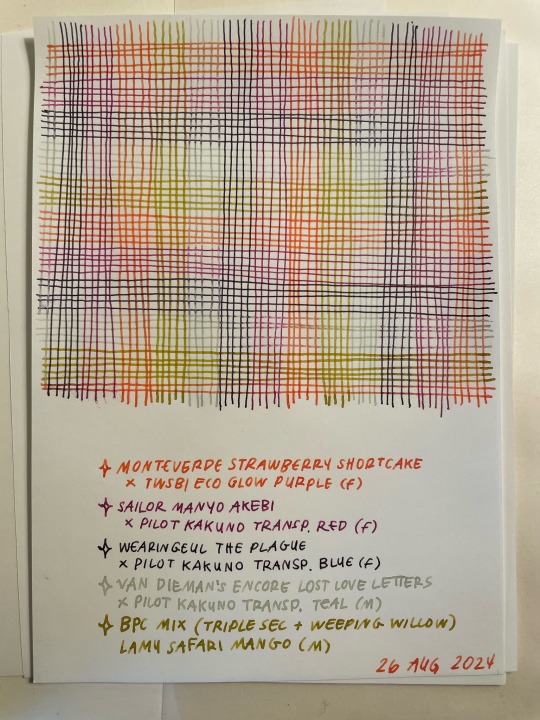 ✧ MONTEVERDE STRAWBERRY SHORTCAKE
× TWSBI ECO GLOW PURPLE (F)
✧ SAILOR MANYO AKEBI
× PILOT KAKUNO TRANSP. RED (F)
✧ WEARINGEUL THE PLAGUE
× PILOT KAKUNO TRANSP. BLUE (F)
✧ VAN DIEMAN'S ENCORE LOST LOVE LETTERS
× PILOT KAKUNO TRANSP. TEAL (M)
✧ BPC MIX (TRIPLE SEC + WEEPING WILLOW)
LAMY SAFARI MANGO (M)
26 AUG 2024